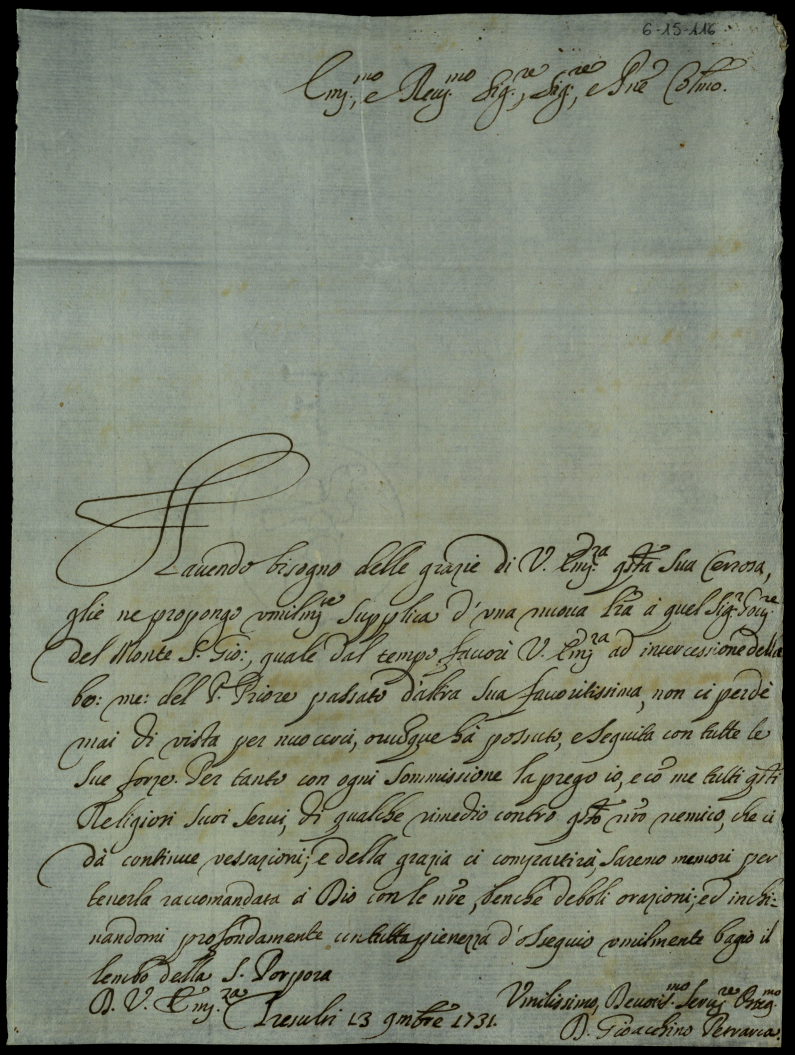 6-15-116
Em:mo, e Reu:mo Sig:re, Sig:re, e Pne Colmo.
Hauendo bisogno delle grazie di V. Em:za qsta Sua Certosa,
glie ne propongo vmilmte supplica d'vna nuoua lra à quel Sig:r
del Monte S. Gio:, quale dal tempo fauorì V. Em:za ad intercessione della
bo: me: del P. Priore passato d'altra Sua fauoritissima, non ci perdè
mai di vista per nuocerci, ouuqque hà possuto, e seguita con tutte le
sue forze. Per tanto con ogni sommissione la prego io, e cō me tutti qsti
Religiosi suoi Serui, di qualche rimedio contro qsto nro nemico, che ci
dà continue vessazioni; e della grazia ci compartirà, saremo memori per
tenerla raccomandata à Dio con le nre, benche deboli orazioni; ed inchi-
nandomi profondamente con tutta pienezza d'osseguio vmilmente bagio il
lembo della S. Porpora
D. V. Em:za
Tresulti 13 9mbre 1731.
Vmilissimo, Deuotis:mo Seru:re Obleg:mo
D. Gioacchino Petrarca.